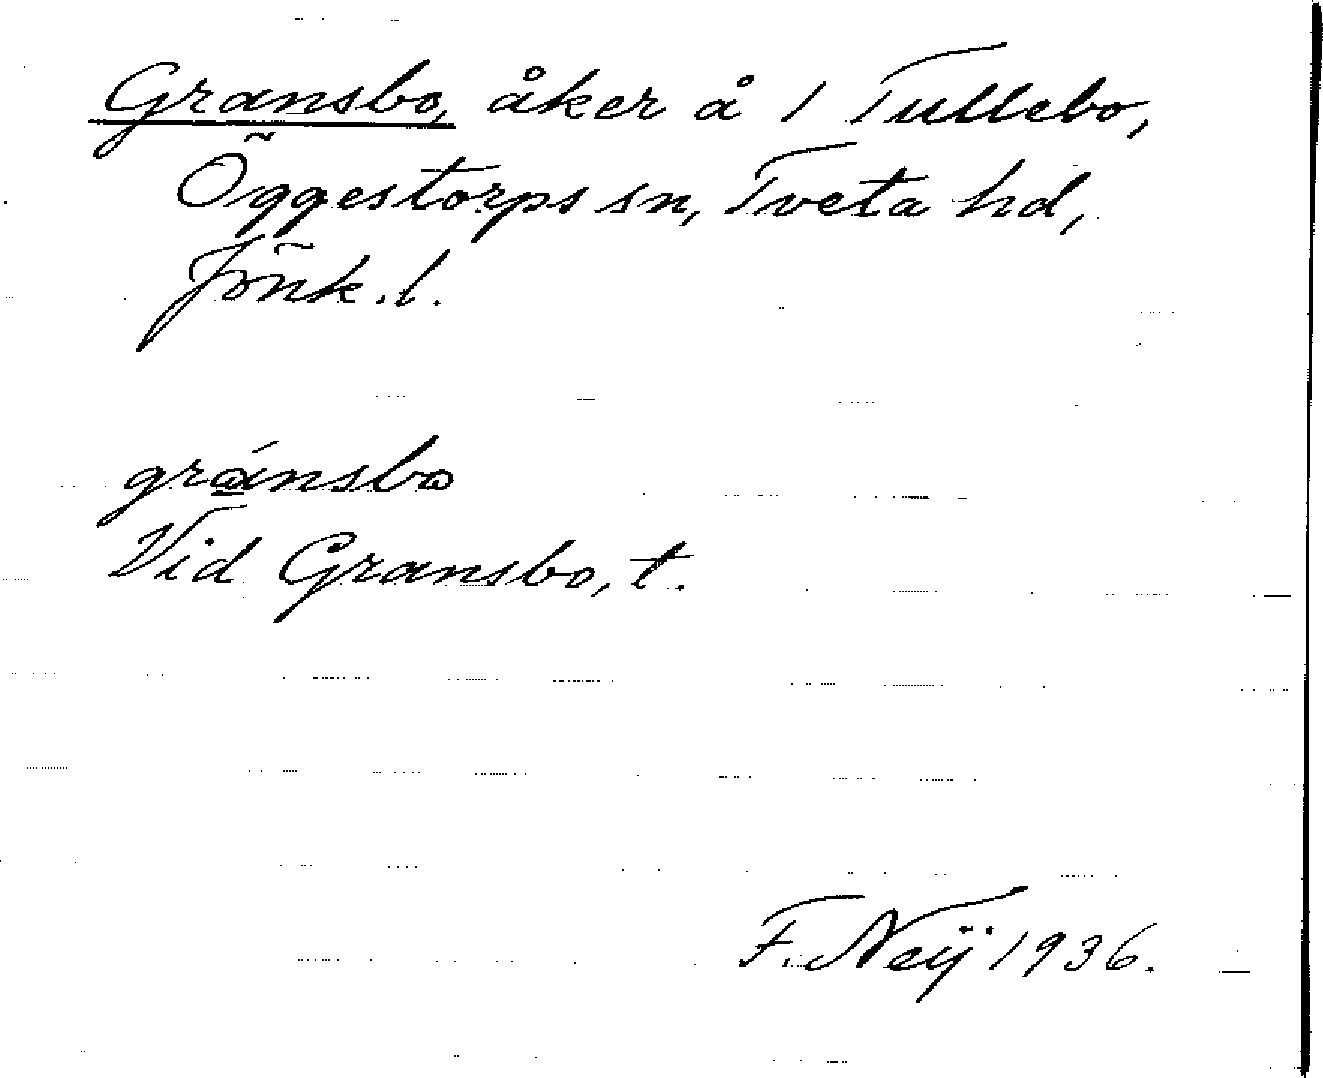 Gransbo, åker å 1 Tullebo,
Öggestorps sn, Tveta hd,
Jönk. l.
grá̱nsbo
Vid Gransbo, t.
F. Neÿ 1936.